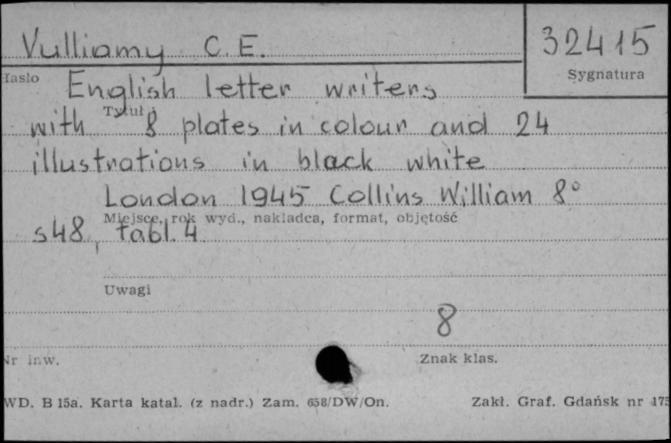 Vulliamy C. E.
32415
Hasło
Sygnatura
English letter writers
Tytuł
with 8 plates in colour and 24
illustrations in black white
London 1945 Collins William 8°
Miejsce, rok wyd., nakładca, format, objętość
s48, tabl. 4
Uwagi
8
Nr inw.
Znak klas.
WD. B 15a. Karta katal. (z nadr.) Zam. 658/DW/On.
Zakł. Graf. Gdańsk nr 175